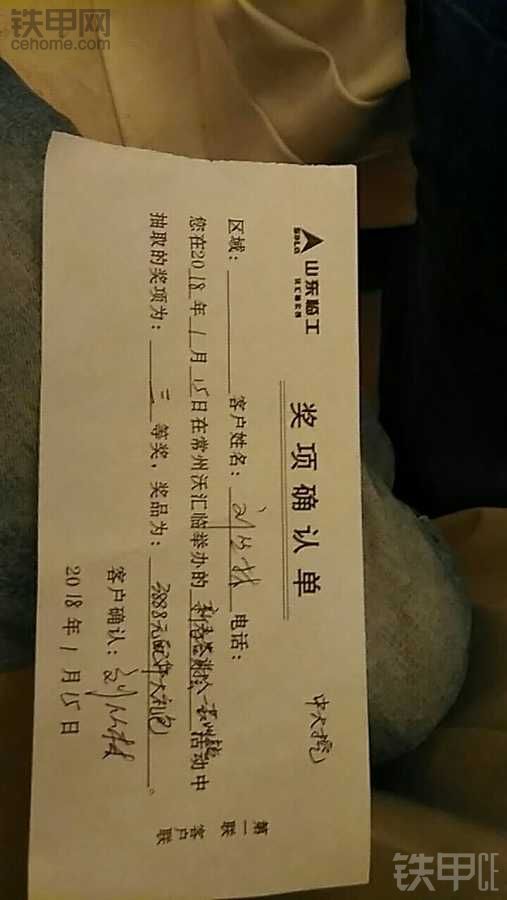 铁甲网
cehome.com
山东临工
SDLG
奖项确认单
中大挖
区域： 客户姓名： 电话：
您在2018年1月15日在常州沃汇临举办的 活动中
抽取的奖项为：三等奖，奖品为：3888元配件大礼包。
客户确认：
2018年1月15日
第一联 客户联
铁甲CE